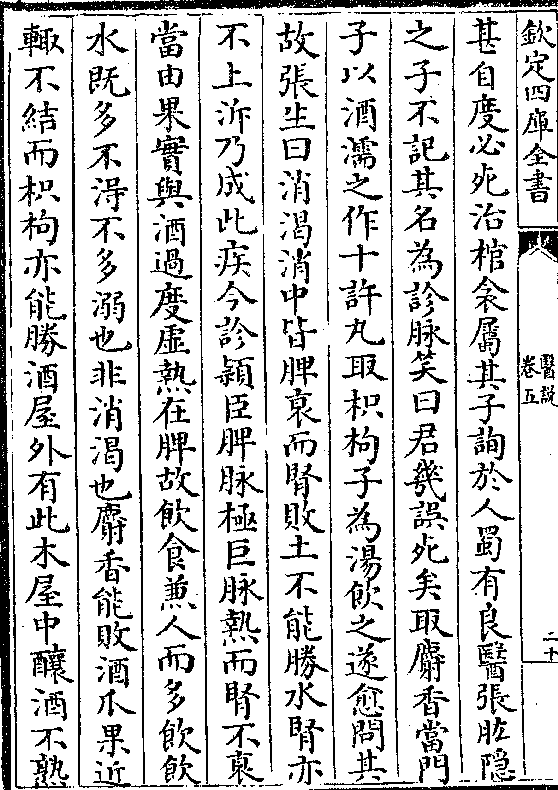 欽定四庫全書
醫說
卷五
二十
甚自度必死治棺衾屬其子詢於人蜀有良醫張肱隱
之子不記其名為診脉笑曰君幾誤死矣取麝香當門
子以酒濡之作十許丸取枳枸子為湯飲之遂愈問其
故張生曰消渴消中皆脾衰而腎敗土不能勝水腎亦
不上泝乃成此疾今診頴臣脾脉極巨脉熱而腎不衰
當由果實與酒過度虛熱在脾故飲食兼人而多飲飲
水既多不淂不多溺也非消渴也麝香能敗酒瓜果近
輙不結而枳枸亦能勝酒屋外有此木屋中釀酒不熟